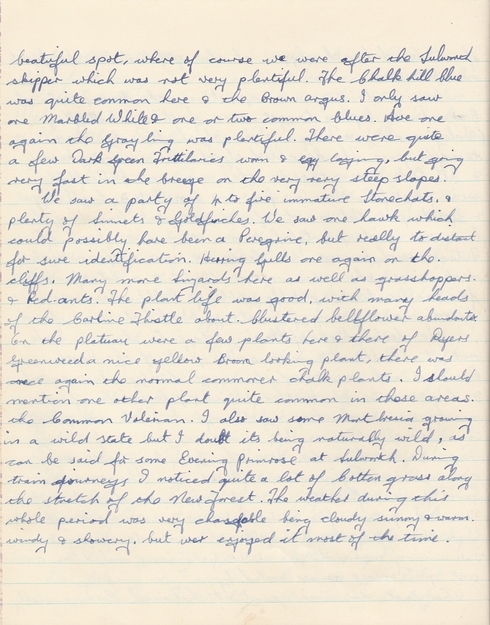 beatiful spot, where of course we were after the Lulworth
skipper which was not very plentiful. The Chalk hill blue
was quite common here & the Brown argus. I only saw
one Marbled White & one or two common blues. Here one
again the Grayling was plentiful. There were quite
a few Dark Green Fritillaries worn & egg laying, but going
very fast in the breeze on the very very steep slopes.
We saw a party of 4 to five immature Stonechats, &
plenty of Linnets & Goldfinches. We saw one hawk which
could possibly have been a Peregrine, but really to distant
for sure identification. Herring Gulls one again on the
cliffs. Many more lizards here as well as grasshoppers.
& Red ants. The plant life was good, with many heads
of the Carline Thistle about. blustered bellflower abundant
On the platuau were a few plants here & there of Dyers
Greenweed a nice yellow Broom looking plant, there was
once again the normal commoner chalk plants. I should
mention one other plant quite common in these areas.
the Common Valerian. I also saw some Montbresia growing
in a wild state but I doubt its being naturally wild, as
can be said for some Evening Primrose at Lulworth. During
train journeys I noticed quite a lot of Cotton grass along
the stretch of the New Forest. The weather during this
whole period was very being cloudy sunny & warm.
windy & showery. but we enjoyed it most of the time.